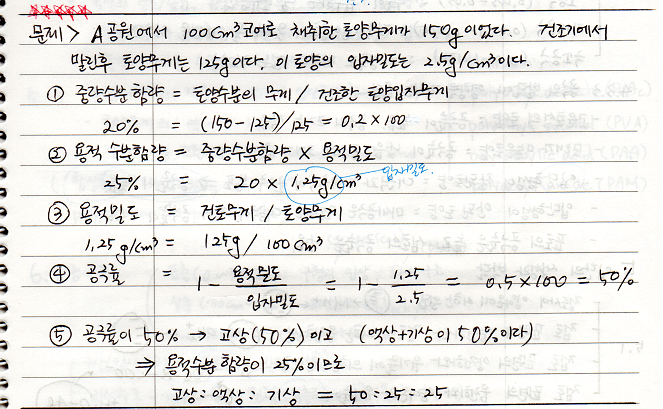 문제> A공원에서 100cm³코어로 채취한 토양무게가 150g이었다. 건조기에서
말린후 토양무게는 125g이다. 이 토양의 입자밀도는 2.5g/cm³이다.
① 중량수분함량 = 토양수분의 무게 / 건조한 토양입자무게
20% = (150-125)/125 = 0.2×100
② 용적수분함량 = 중량수분함량 × 용적밀도
25% = 20 × 1.25g/cm³ 입자밀도.
③ 용적밀도 = 건토무게 / 토양무게
1.25g/cm³ = 125g / 100cm³
④ 공극률 = 1 - 용적밀도/입자밀도 = 1 - 1.25/2.5 = 0.5×100 = 50%
⑤ 공극률이 50% → 고상(50%)이고 (액상+기상이 50%이라)
⇒ 용적수분함량이 25%이므로
고상:액상:기상 = 50:25:25